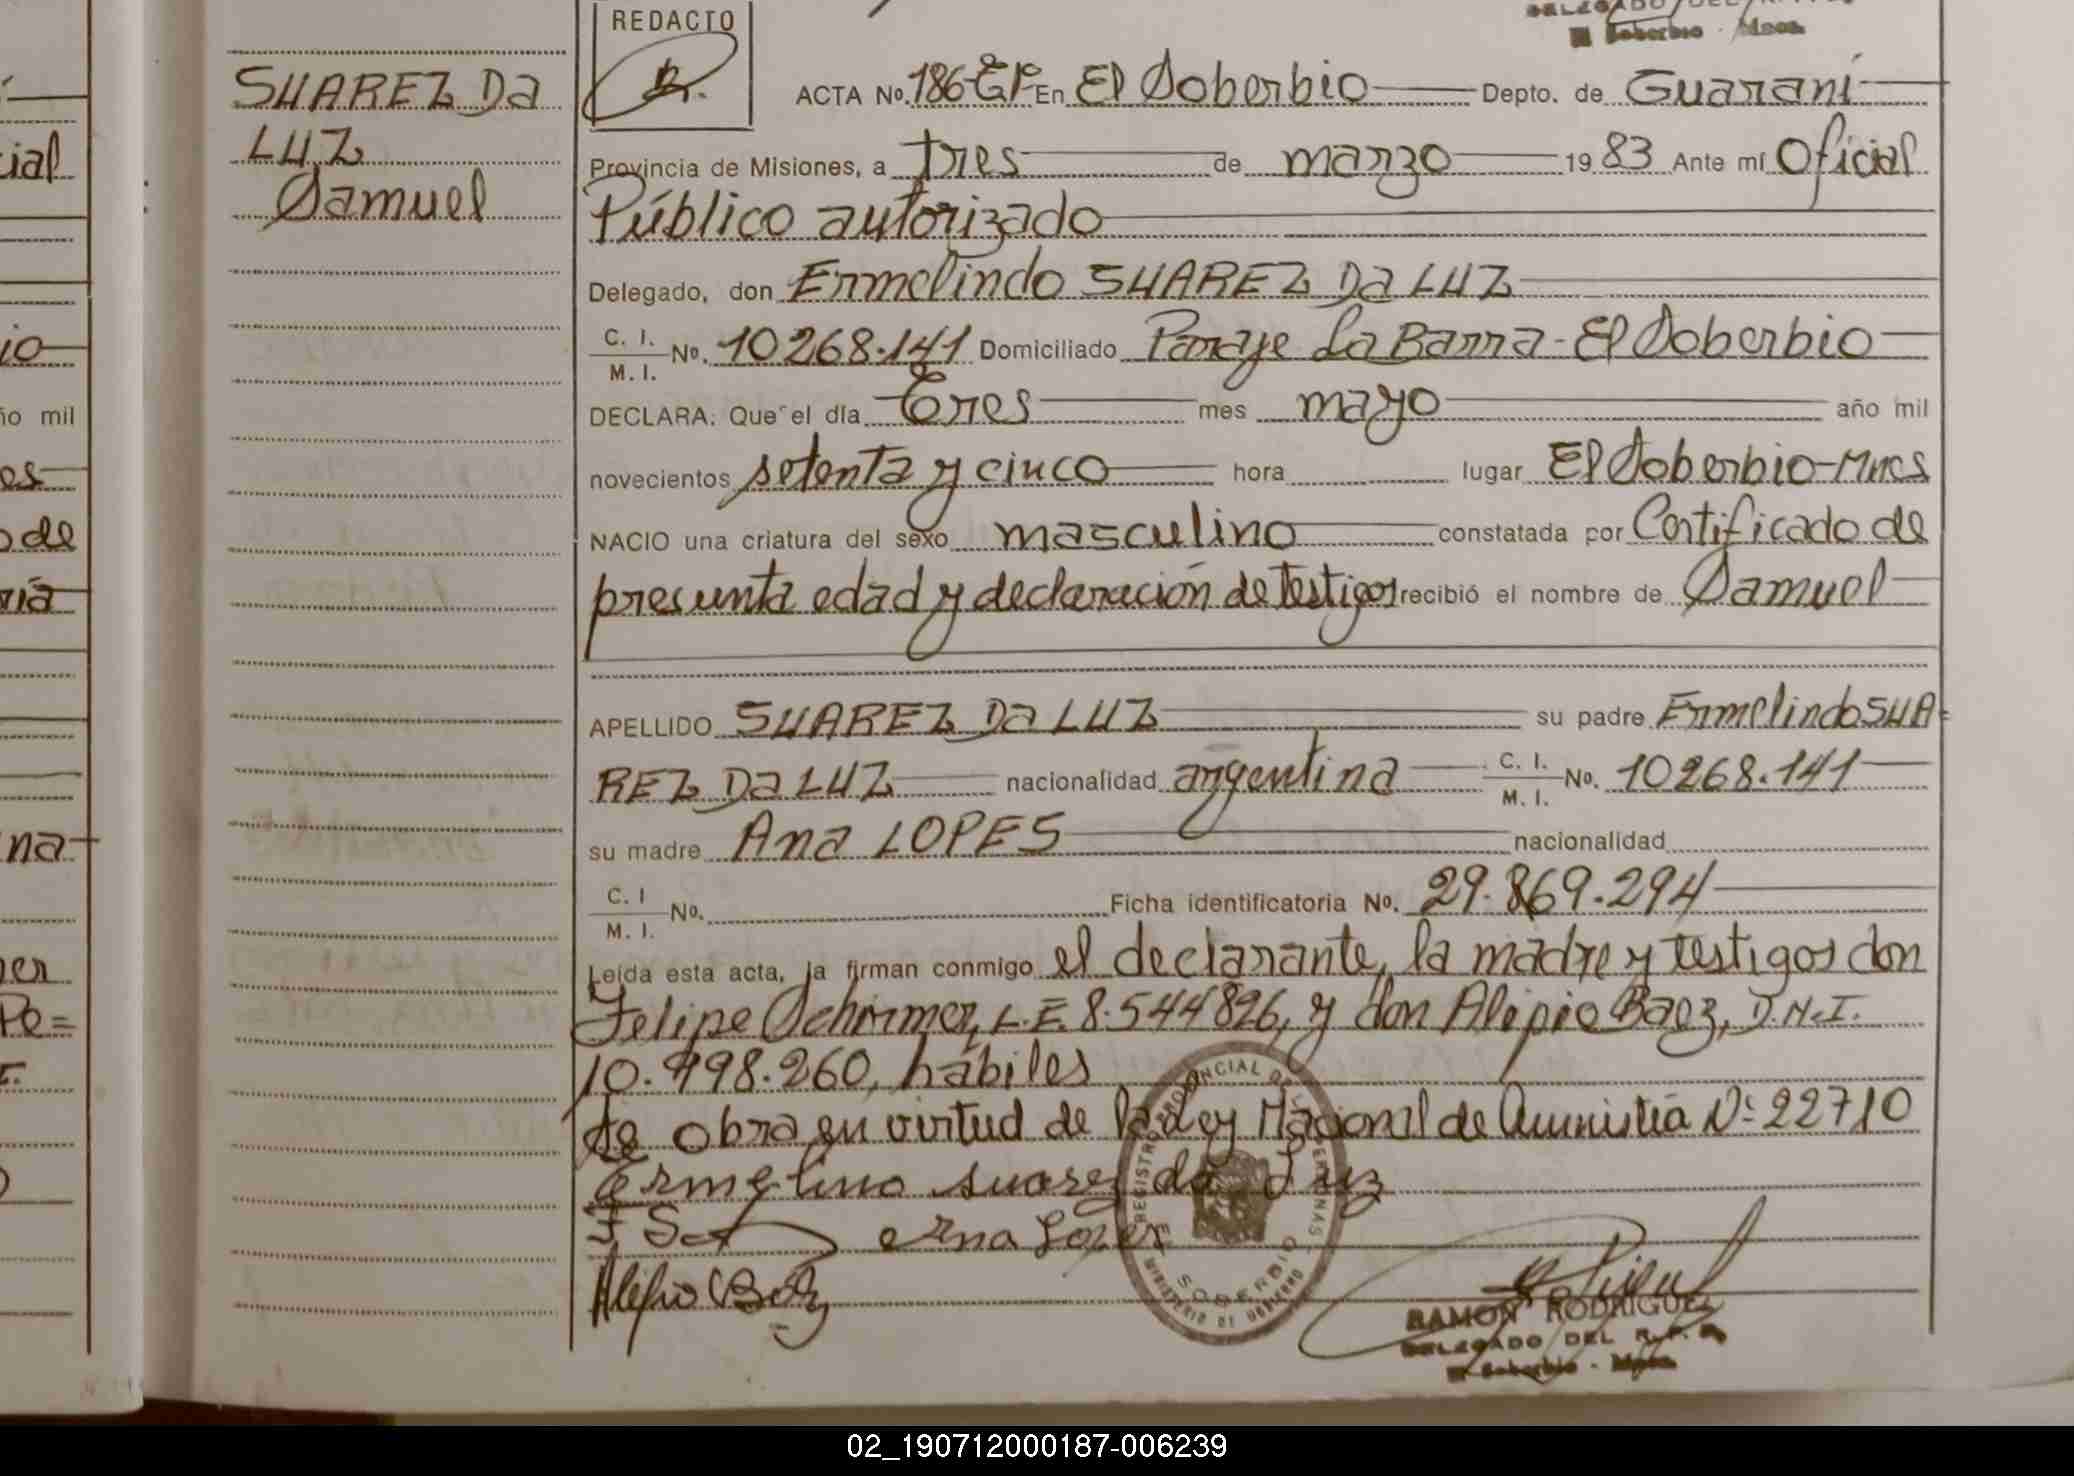 REDACTO
DELEGADO DEL R. P.
El Soberbio - Mnes.
SUAREZ Da
LUZ
Samuel
ACTA No. 186 En El Soberbio Depto. de Guaraní
Provincia de Misiones, a tres de marzo 19 83 Ante mí Oficial
Público autorizado
Delegado, don Ermelindo SUAREZ Da LUZ
C. I.
M. I. No. 10268.141 Domiciliado Paraje La Barra - El Soberbio
DECLARA: Que el día Tres mes mayo año mil
novecientos setenta y cinco hora lugar El Soberbio-Mnes
NACIO una criatura del sexo masculino constatada por Certificado de
presunta edad y declaración de testigos recibió el nombre de Samuel
APELLIDO SUAREZ Da LUZ su padre Ermelindo SUA=
REZ Da LUZ nacionalidad argentina C. I.
M. I. No. 10268.141
su madre Ana LOPES nacionalidad
C. I
M. I. No. Ficha identificatoria No. 29.869.294
Leída esta acta, la firman conmigo el declarante, la madre y testigos don
Felipe Schirmer, L.E. 8.544826, y don Alipio Baez, D.N.I.
10.998.260, hábiles
de obra en virtud de la Ley Nacional de Amnistía Nº 22710
Ermelino suarez da Luz
Ana Lopes
Alipio Baez
REGISTRO PROVINCIAL DE LAS PERSONAS
SOBERBIO
MINISTERIO DE GOBIERNO
RAMON RODRIGUEZ
DELEGADO DEL R. P. P.
El Soberbio - Mnes.
ial
io
ño mil
es
o de
na
er
Pe=
02_190712000187-006239